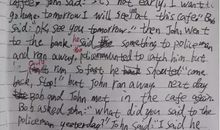 coffee. John said: "It's not early, I want t.
go home. tomorrow I will see Bob, this cafe." Bo
said: "OK. see you tomorrow." then John went
to the bank and said something to policeman
and ran away, policeman wanted to catch him but
can't run so fast he shouted "come
back, stop! But John ran away next day
Bob and John met in the cafe again
Bob asked John: "What did you said to the
policeman yesterday?" John said: "I said he